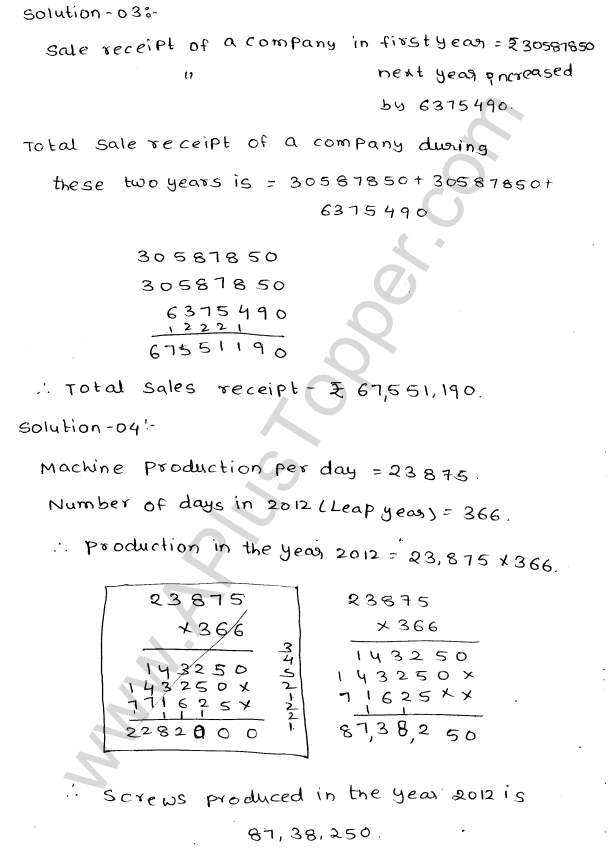 Solution-03:-
Sale receipt of a company in first year = ₹30587850
" next year increased
by 6375490.
Total sale receipt of a company during
these two years is = 30587850+30587850+
6375490
30587850
30587850
6375490
12221
67551190
∴ Total sales receipt - ₹ 67,551,190.
Solution-04:-
Machine production per day = 23875.
Number of days in 2012 (Leap year) = 366.
∴ production in the year 2012 = 23,875×366.
23875
×366
143250
143250×
71625×
111
2282000
3
4
5
2
1
2
2
1
23875
×366
143250
143250×
71625××
1 1
87,38,250
∴ Screws produced in the year 2012 is
87,38,250.
www.APlusTopper.com